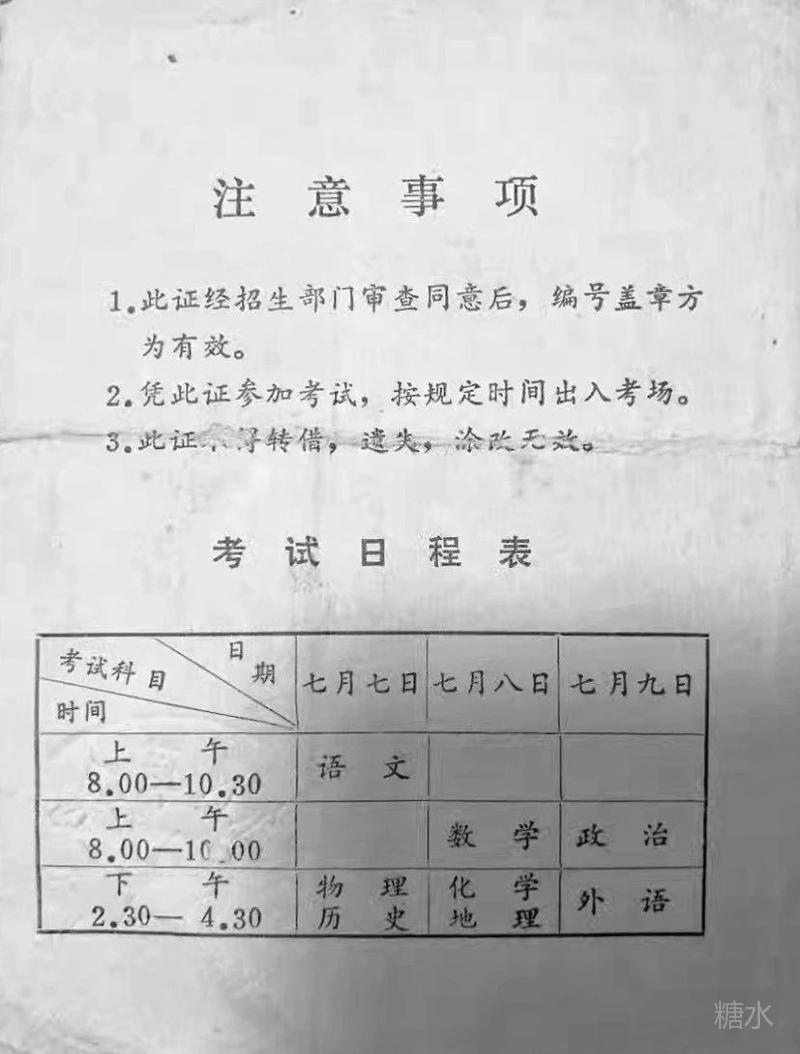 注意事项
1.此证经招生部门审查同意后，编号盖章方
为有效。
2.凭此证参加考试，按规定时间出入考场。
3.此证不得转借，遗失，涂改无效。
考试日程表
考试科目 日期 七月七日 七月八日 七月九日
时间
上午
8.00—10.30 语文
上午
8.00—10.00 数学 政治
下午 物理 化学
2.30—4.30 历史 地理 外语
糖水